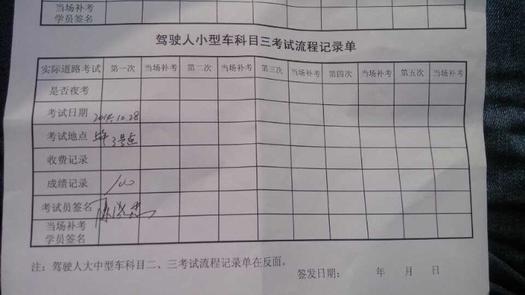 当场补考
学员签名
驾驶人小型车科目三考试流程记录单
实际道路考试 第一次 当场补考 第二次 当场补考 第三次 当场补考 第四次 当场补考 第五次 当场补考
是否夜考
考试日期 2014.10.28
考试地点 3号点
收费记录
成绩记录 100
考试员签名
当场补考
学员签名
注:驾驶人大中型车科目二、三考试流程记录单在反面。
签发日期: 年 月 日